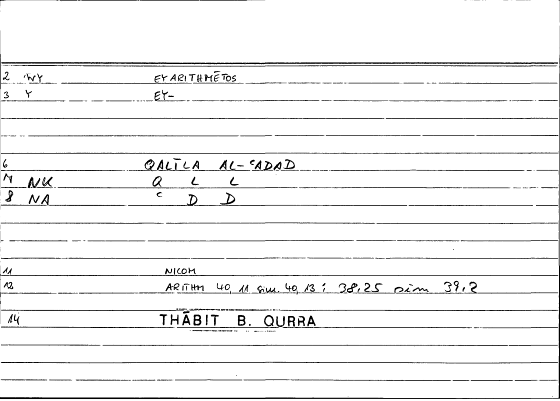 2 WY EYARITHMĒTOS
3 Y EY-
6 QALĪLA AL-ʿADAD
7 NU Q L L
8 NA ʿ D D
11 NICOM
12 ARITHM 40, 11 sim. 40, 13; 38,25 sim 39,2
14 THĀBIT B. QURRA